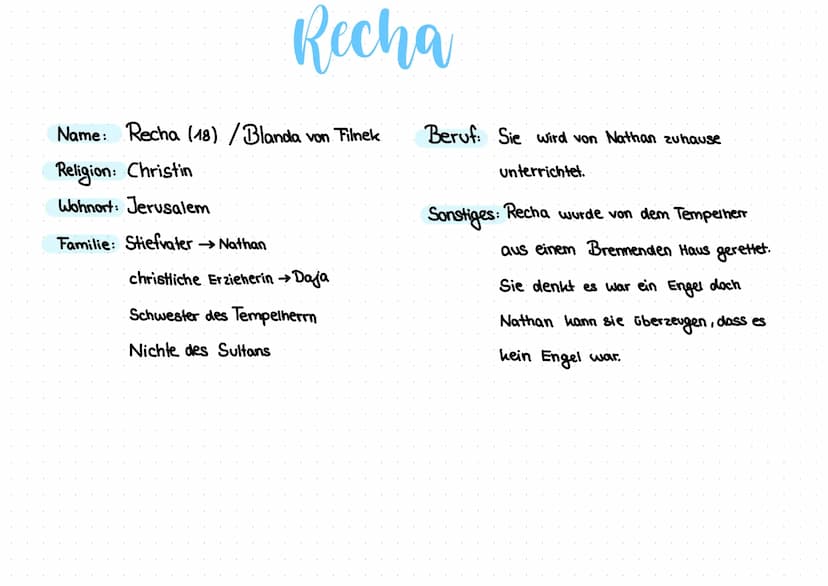 Recha
Name: Recha (18) / Blanda von Filnek
Religion: Christin
Wohnort: Jerusalem
Familie: Stiefvater → Nathan
christliche Erzieherin → Daja
Schwester des Tempelherrn
Nichte des Sultans
Beruf: Sie wird von Nathan zuhause
unterrichtet.
Sonstiges: Recha wurde von dem Tempelherr
aus einem Brennenden Haus gerettet.
Sie denkt es war ein Engel doch
Nathan kann sie überzeugen, dass es
kein Engel war.